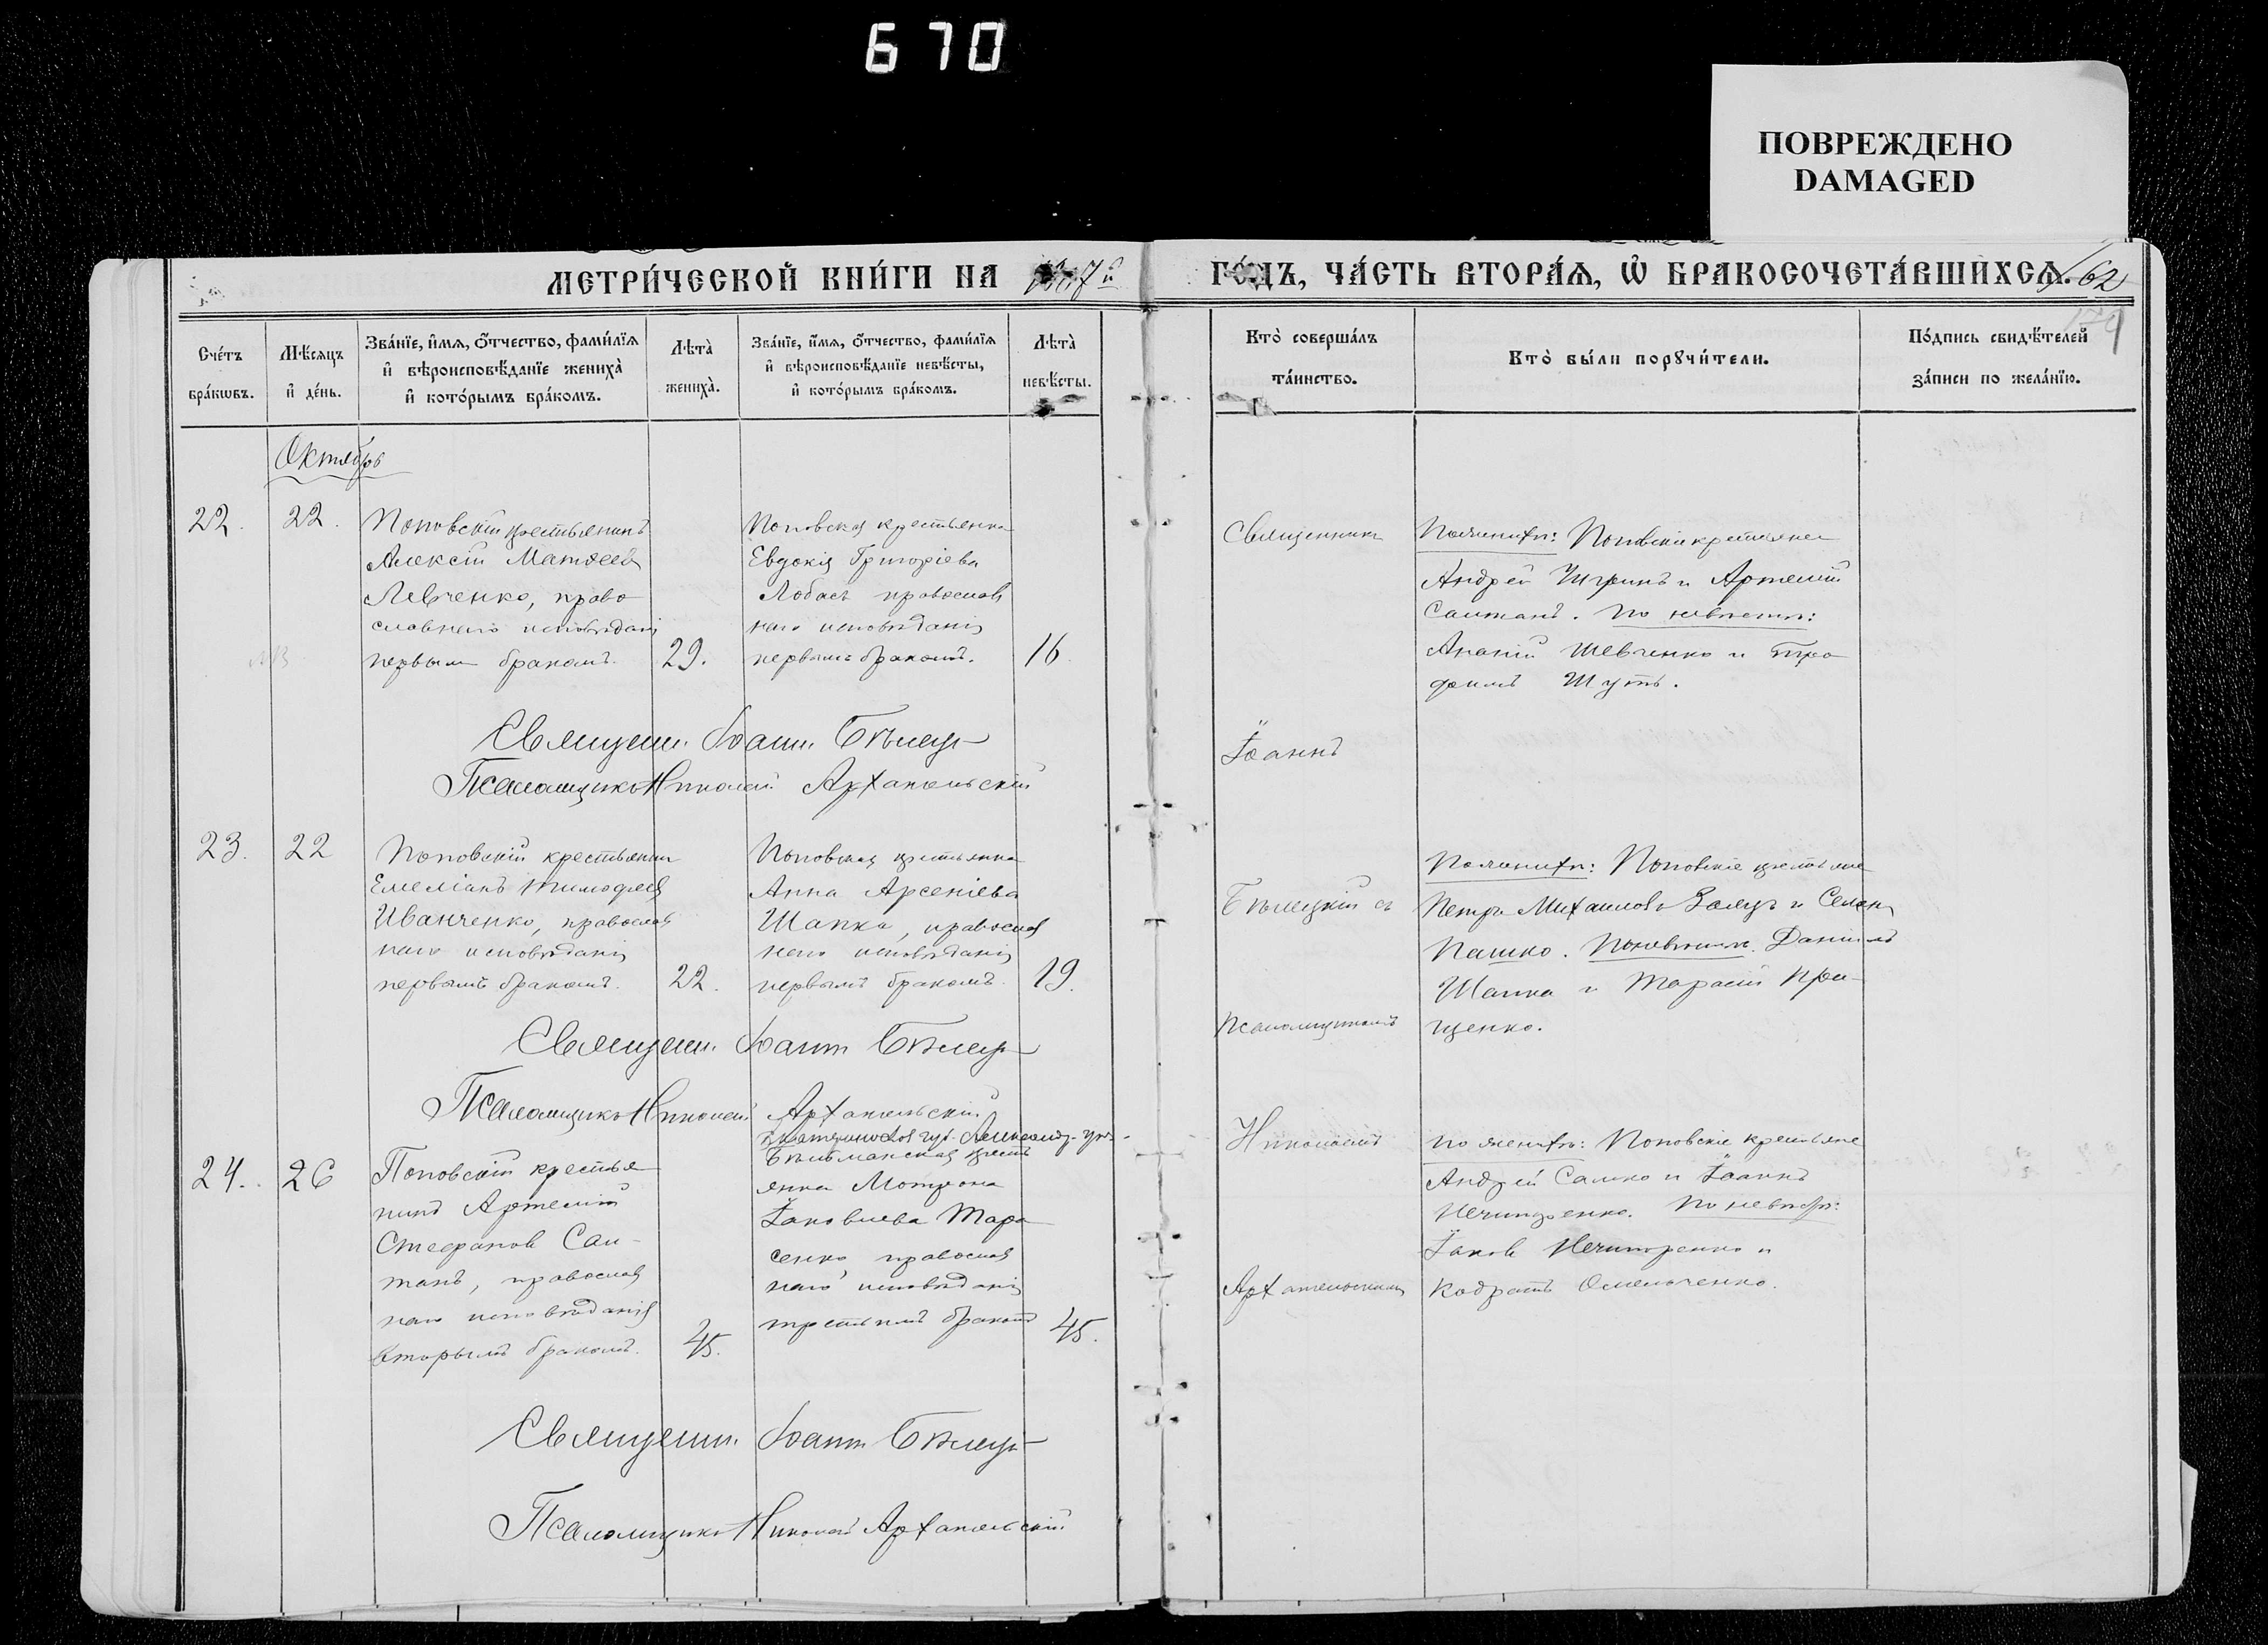 670
ПОВРЕЖДЕНО
DAMAGED
МЕТРИ́ЧЕСКОЙ КНИ́ГИ НА 1887й ГО́ДЪ, ЧА́СТЬ ВТОРА́Я, Ѡ БРАКОСОЧЕТА́ВШИХСЯ. 162
179
Сче́тъ бра́кѡвъ.
Мѣ́сяцъ и де́нь.
Зва́нїе, и́мя, ѻ́тчество, фами́лїя
и вѣроисповѣ́данїе жениха̀
и кото́рымъ бра́комъ.
Лѣта̀ жениха̀.
Зва́нїе, и́мя, ѻ́тчество, фами́лїя
и вѣроисповѣ́данїе невѣ́сты,
и кото́рымъ бра́комъ.
Лѣта̀ невѣ́сты.
Кто̀ соверша́лъ та́инство.
Кто̀ бы́ли порꙋчи́тели.
По́дпись свидѣ́телей за́писи по жела́нїю.
Октябрь
22.
22.
Поповскій крестьянинъ
Алексій Матѳеевъ
Левченко, право
славнаго исповѣданія
первым бракомъ.
29.
Поповская крестьянка
Евдокія Григоріева
Лобасъ православ
наго исповѣданія
первымъ бракомъ.
16.
Священник
По женихѣ: Поповскіе крестьяне
Андрей Шгринъ и Артемій
Салтанъ. По невѣстѣ:
Ананій Шевченко и Тро
фимъ Шуть.
Священн. Іоанн Бѣлец
Псаломщикъ Николай Архангельскій
Іоаннъ
23.
22
Поповскій крестьянин
Емеліанъ Тимофеев
Иванченко, православ
наго исповѣданія
первымъ бракомъ.
22.
Поповская крестьянка
Анна Арсеніева
Шапка, православ
наго исповѣданія
первымъ бракомъ.
19.
Бѣлецкій съ
По женихѣ: Поповскіе крестьяне
Петръ Михаилов Заецъ и Семен
Пашко. По невѣстѣ. Даніилъ
Шапка и Тарасій Гри-
щенко.
Псаломщикомъ
Священн. Іоанн Бѣлец
Псаломщикъ Николай Архангельскій
Николаемъ
24.
26
Поповскій крестья
нинъ Артемій
Стефанов Сал-
танъ, православ
наго исповѣданія
вторымъ бракомъ.
45.
Екатеринослав губ. Александр. уѣз.
Бѣльманская крест
янка Мотрона
Іаковлева Тара
сенко, православ
наго исповѣданія
третьимъ бракомъ
45.
По женихѣ: Поповскіе крестьяне
Андрей Сашко и Іоаннъ
Нечипоренко. По невѣстѣ:
Іаков Нечипоренко и
Кодратъ Омельченко.
Архангельскимъ
Священн. Іоанн Бѣлец
Псаломщикъ Николай Архангельскій